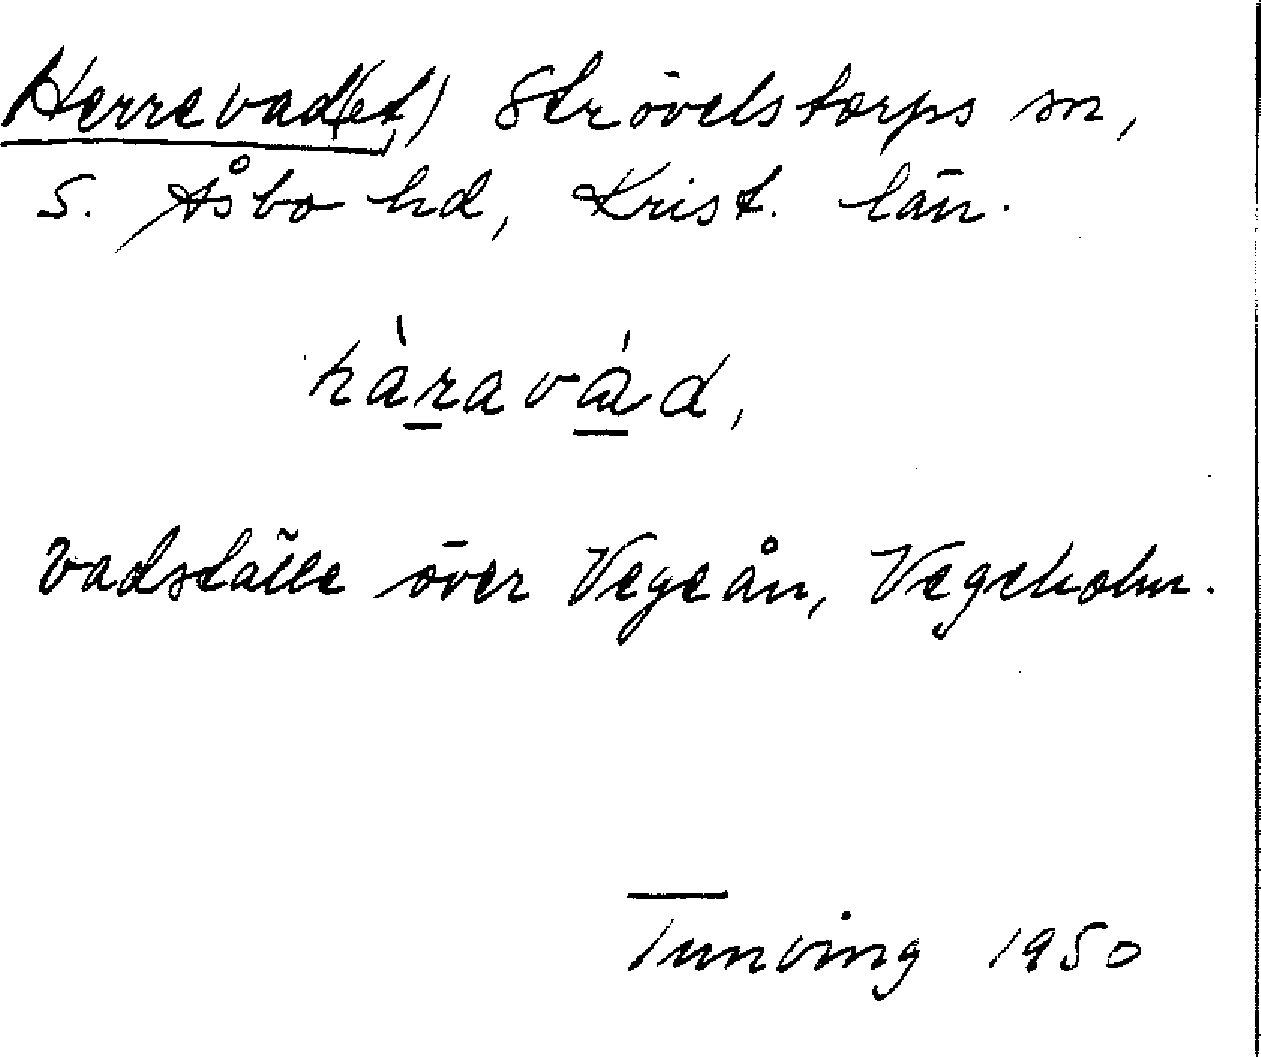 Herrevad(et) Strövelstorps sn,
S. Åsbo hd, Krist. län.
hàravád,
Vadställe över Vegeån, Vegeholm.
Tunving 1950